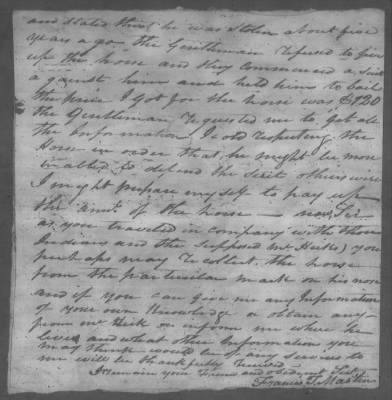 and stated that he was stolen about five
years ago the Gentleman refused to give
up the horse and they commenced a suit
against him and held him to bail
the price I got for the horse was $130
the Gentleman requested me to get all
the Information I could respecting the
Horse in order that he might be more
enabled to defend the suit otherwise
I might prepare myself to pay up
the amt. of the horse — now Sir
as you traveled in company with those
Indians and the supposed Mr Hicks) you
perhaps may recollect the horse
from the particular mark on his nose
and if you can give me any Information
of your own Knowledge or obtain any
from Mr Hicks or inform me where he
lives and what other Information you
may think would be of any services to
me will be thankfully received
I remain your Friend and obedient Sert
Francis T. Mastin